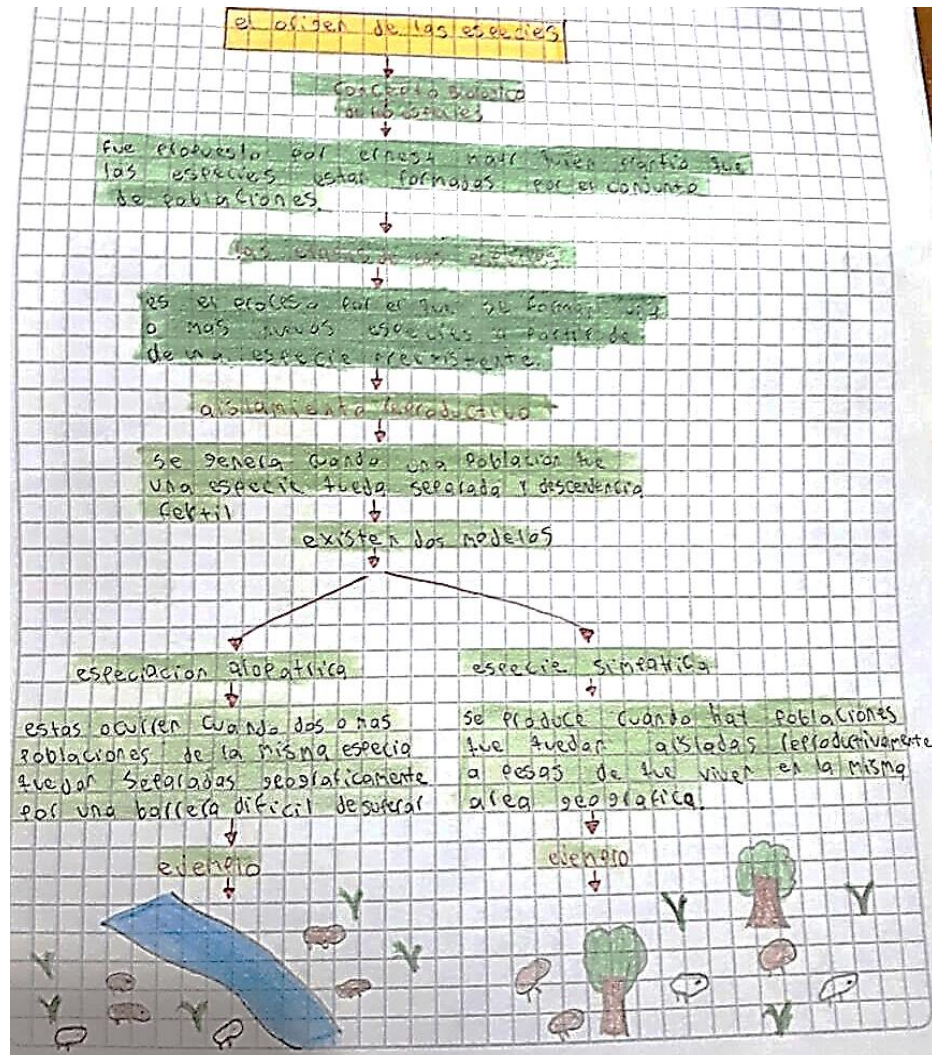 el origen de las especies
Concepto Biologico
de las especies
fue propuesto por ernest mair quien partio que
las especies estan formadas por el conjunto
de poblaciones.
las especies
es el proceso por el que se forman una
o mas nuevas especies a partir de
de una especie preexistente.
aislamiento reproductivo
se genera cuando una poblacion que
una especie queda separada y descendencia
fertil
existen dos modelos
especiacion alopatrica
especie simpatrica
estas ocurren cuando dos o mas
poblaciones de la misma especia
quedar separadas geograficamente
por una barrera dificil de superar
se produce cuando hay poblaciones
que quedar aisladas reproductivamente
a pesas de que viven en la misma
area geografica.
ejemplo
ejemplo